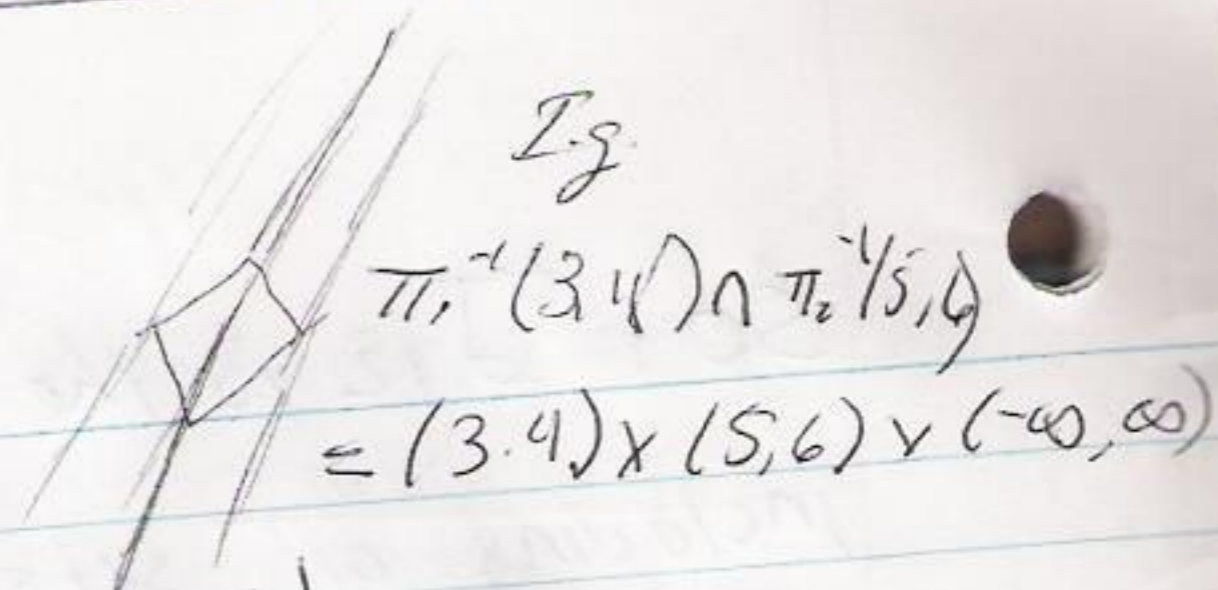 I.g.
π₁⁻¹(3,4) ∩ π₂⁻¹(5,6)
= (3.4) x (5,6) x (-∞, ∞)